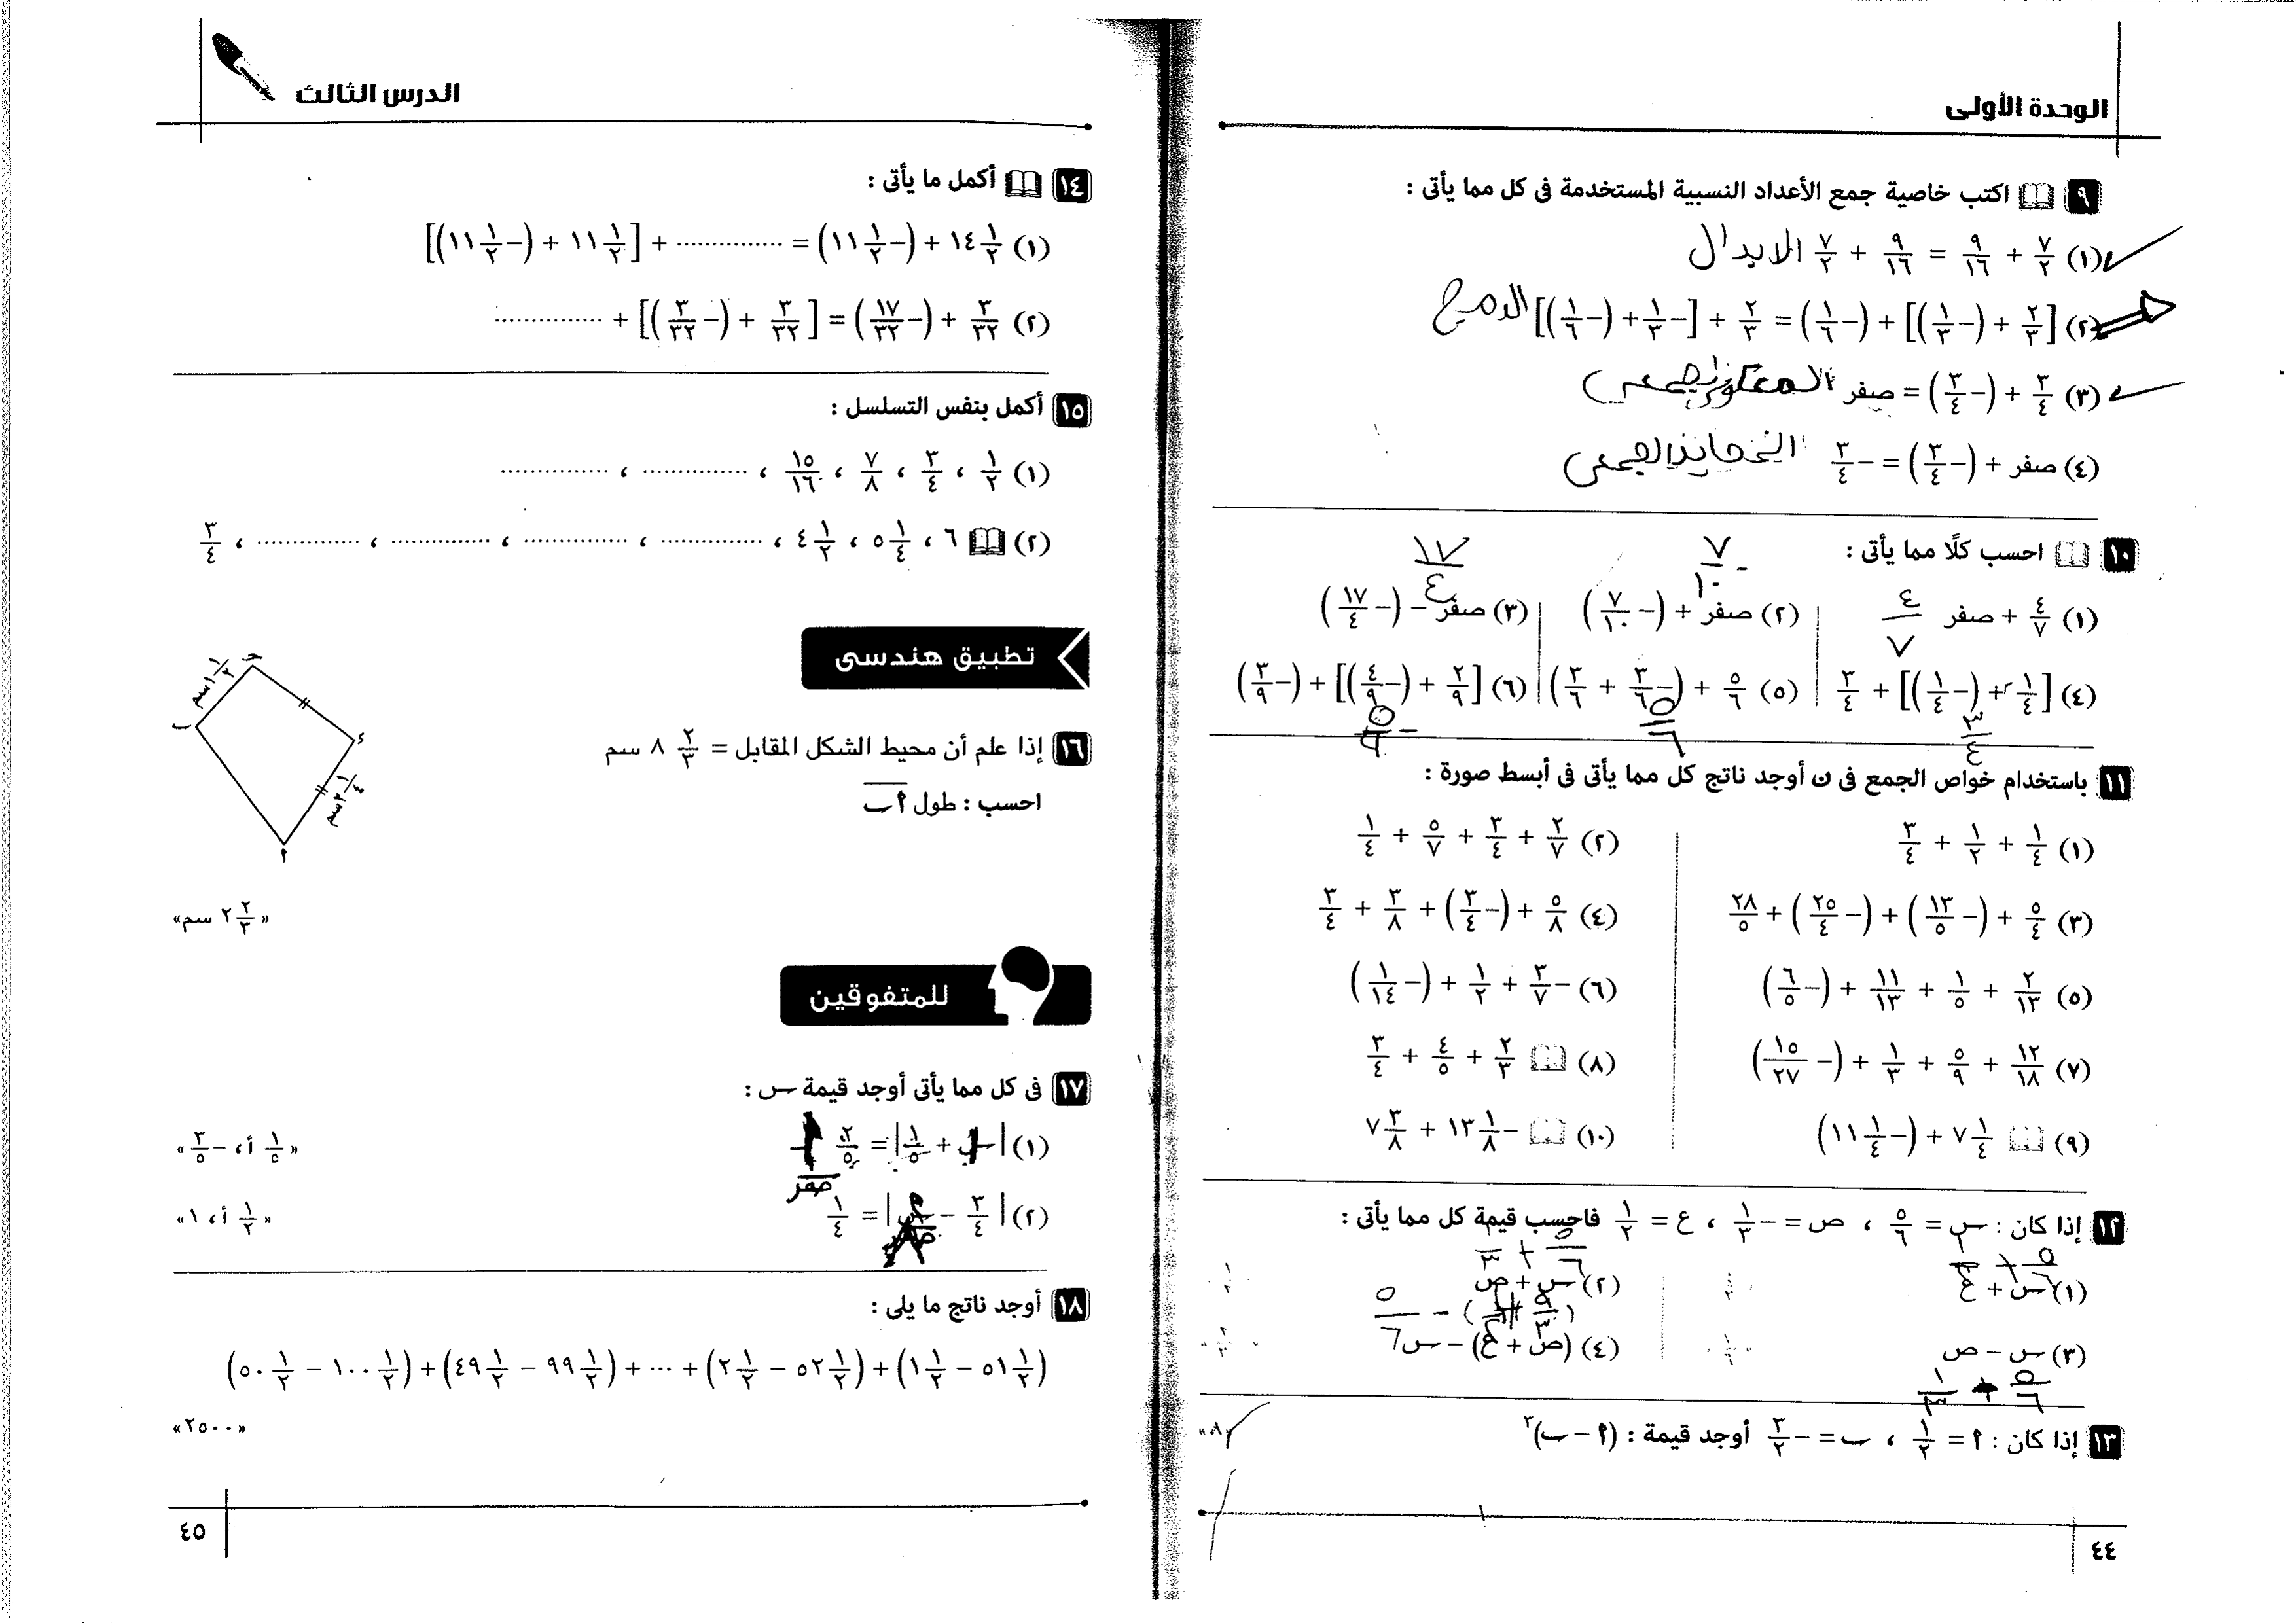 الوحدة الأولى
٩ اكتب خاصية جمع الأعداد النسبية المستخدمة فى كل مما يأتى :
(١) ٧/٢ + ٩/١٦ = ٩/١٦ + ٧/٢ الابدال
(٢) [٢/٣ + (−١/٣)] + (−١/٦) = ٢/٣ + [−١/٣ + (−١/٦)] الدمج
(٣) ٣/٤ + (−٣/٤) = صفر المعكوس الجمعى
(٤) صفر + (−٣/٤) = −٣/٤ المحايد الجمعى
١٠ احسب كلًا مما يأتى :
(١) ٤/٧ + صفر ٤/٧ (٢) صفر + (−٧/١٠) −٧/١٠ (٣) صفر − (−١٧/٤) ١٧/٤
(٤) [١/٤ + (−١/٤)] + ٣/٤ ٣/٤ (٥) ٥/٦ + (−٣/٦ + ٣/٦) ٥/٦ (٦) [٢/٩ + (−٤/٩)] + (−٣/٩) −٥/٩
١١ باستخدام خواص الجمع فى ن أوجد ناتج كل مما يأتى فى أبسط صورة :
(١) ١/٤ + ١/٢ + ٣/٤ (٢) ٢/٧ + ٣/٤ + ٥/٧ + ١/٤
(٣) ٥/٤ + (−١٣/٥) + (−٢٥/٤) + ٢٨/٥ (٤) ٥/٨ + (−٣/٤) + ٣/٨ + ٣/٤
(٥) ٢/١٣ + ١/٥ + ١١/١٣ + (−٦/٥) (٦) −٣/٧ + ١/٢ + (−١/١٤)
(٧) ١٢/١٨ + ٥/٩ + ١/٣ + (−١٥/٢٧) (٨) ٢/٣ + ٤/٥ + ٣/٤
(٩) ٧ ١/٤ + (−١١ ١/٤) (١٠) −١٣ ١/٨ + ٧ ٣/٨
١٢ إذا كان : س = ٥/٦ ، ص = −١/٣ ، ع = ١/٢ فاحسب قيمة كل مما يأتى :
(١) س + ع (٢) س + ص
(٣) س − ص (٤) (ص + ع) − س
٥/٦ + ١/٣
١٣ إذا كان : ٢ = ١/٢ ، ب = −٣/٢ أوجد قيمة : (٢ − ب)٣ «٨»
٤٤
الدرس الثالث
١٤ أكمل ما يأتى :
(١) ١٤ ١/٢ + (−١١ ١/٢) = .............. + [١١ ١/٢ + (−١١ ١/٢)]
(٢) ٣/٣٢ + (−١٧/٣٢) = [٣/٣٢ + (−٣/٣٢)] + ..............
١٥ أكمل بنفس التسلسل :
(١) ١/٢ ، ٣/٤ ، ٧/٨ ، ١٥/١٦ ، .............. ، ..............
(٢) ٦ ، ٥ ١/٤ ، ٤ ١/٢ ، .............. ، .............. ، .............. ، .............. ، ٣/٤
تطبيق هندسى
١٦ إذا علم أن محيط الشكل المقابل = ٨ ٢/٣ سم
احسب : طول ٢ب
حـ
١ ١/٢ سم
ب
ء
٢ ١/٤ سم
٢
«٢ ٢/٣ سم»
للمتفوقين
١٧ فى كل مما يأتى أوجد قيمة س :
(١) |س + ١/٥| = ٢/٥ «١/٥ أ، −٣/٥»
صفر
(٢) |٣/٤ − س| = ١/٤ «١/٢ أ، ١»
١٨ أوجد ناتج ما يلى :
(٥١ ١/٢ − ١ ١/٢) + (٥٢ ١/٢ − ٢ ١/٢) + ... + (٩٩ ١/٢ − ٤٩ ١/٢) + (١٠٠ ١/٢ − ٥٠ ١/٢)
«٢٥٠٠»
٤٥